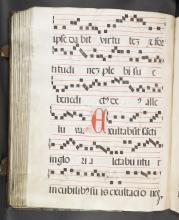 ipse da bit virtu tez z for
titudi nez ple bi su e
benedi ctꝰ deꝰ alle
lu ya. Exultabūt sācti
in glo ri a letabūtu r
in cubilibꝰ su is exultacio neſ